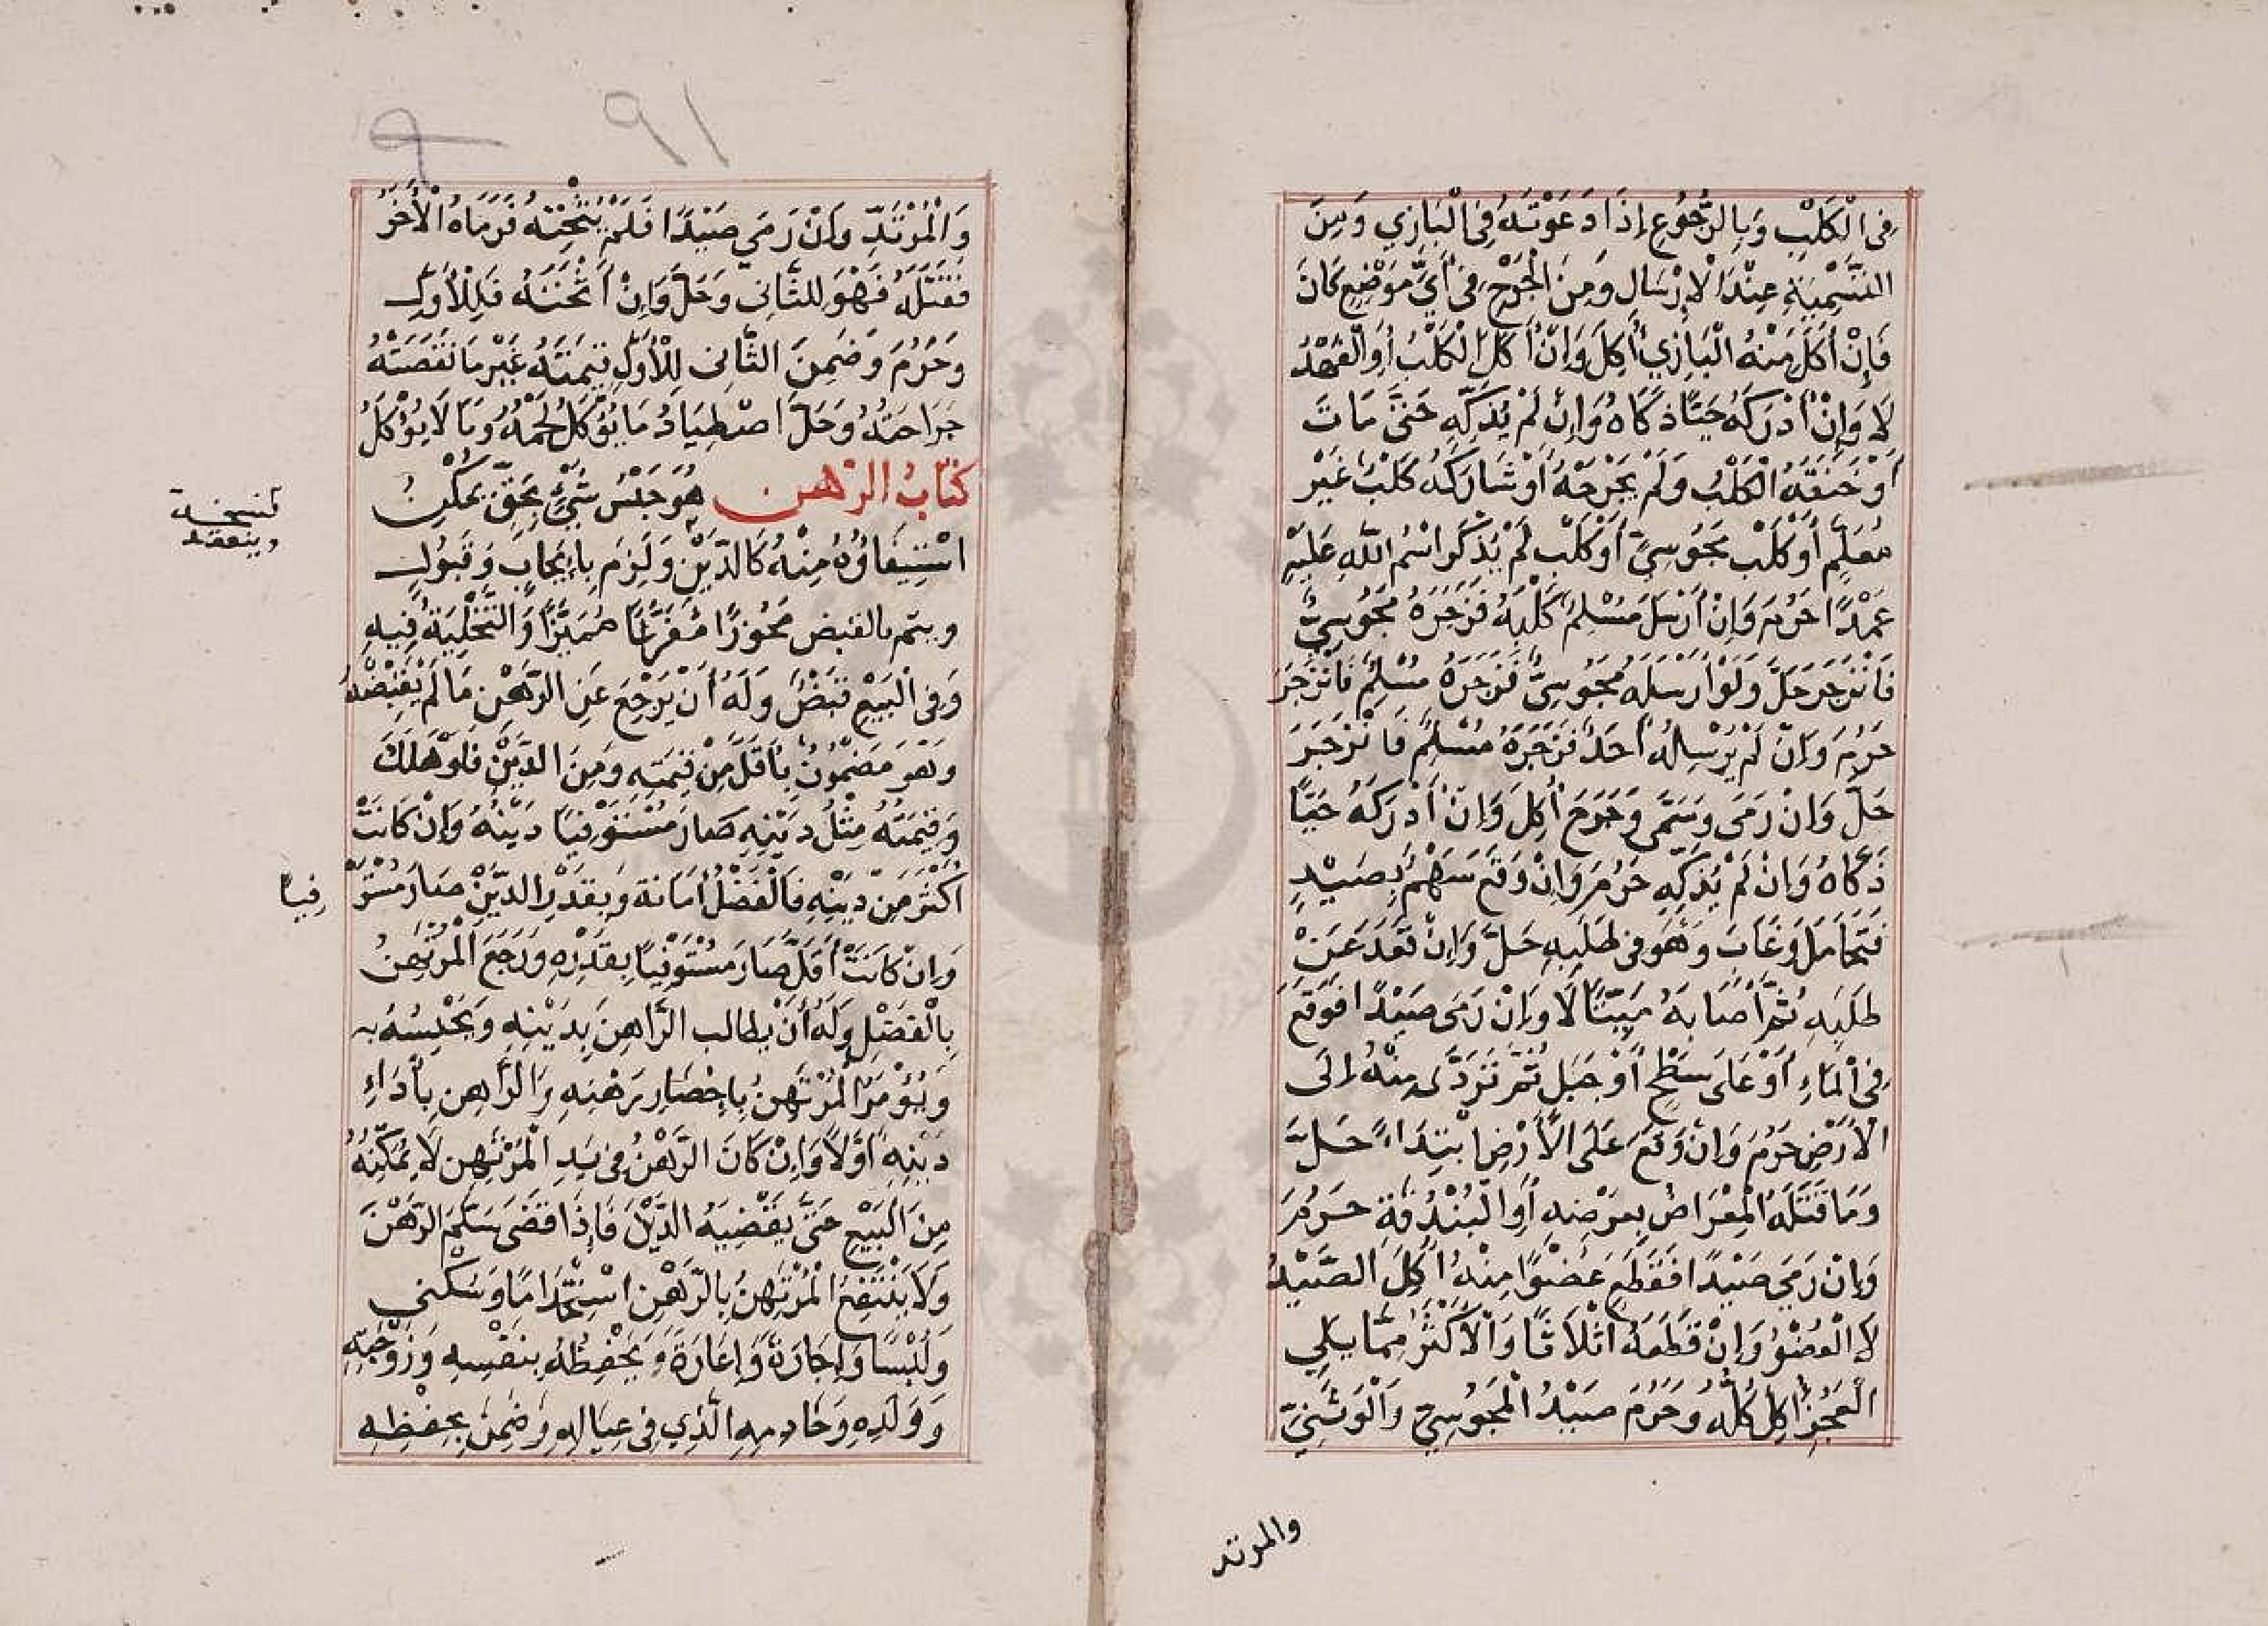 فِى الْكَلْبِ وَبِالرُّجُوعِ إِذَا دَعَوْتَهُ فِى الْبَازِي وَمِنَ
التَّسْمِيَةِ عِنْدَ الْإِرْسَالِ وَمِنَ الْجَرْحِ فِى أَيِّ مَوْضِعٍ كَانَ
فَإِنْ أَكَلَ مِنْهُ الْبَازِي أُكِلَ وَإِنْ أَكَلَ الْكَلْبُ أَوِ الْفَهْدُ
لَا وَإِنْ أَدْرَكَهُ حَيًّا ذَكَّاهُ وَإِنْ لَمْ يُذَكِّهِ حَتَّى مَاتَ
أَوْ خَنَقَهُ الْكَلْبُ وَلَمْ يَجْرَحْهُ أَوْ شَارَكَهُ كَلْبُ غَيْرِ
مُعَلَّمٍ أَوْ كَلْبِ مَجُوسِيٍّ أَوْ كَلْبٍ لَمْ يُذْكَرِ اسْمُ اللَّهِ عَلَيْهِ
عَمْدًا حَرُمَ وَإِنْ أَرْسَلَ مُسْلِمٌ كَلْبَهُ فَزَجَرَهُ مَجُوسِيٌّ
فَانْزَجَرَ حَلَّ وَلَوْ أَرْسَلَهُ مَجُوسِيٌّ فَزَجَرَهُ مُسْلِمٌ فَانْزَجَرَ
حَرُمَ وَإِنْ لَمْ يُرْسِلْهُ أَحَدٌ فَزَجَرَهُ مُسْلِمٌ فَانْزَجَرَ
حَلَّ وَإِنْ رَمَى وَسَمَّى وَجَرَحَ أُكِلَ وَإِنْ أَدْرَكَهُ حَيًّا
ذَكَّاهُ وَإِنْ لَمْ يُذَكِّهِ حَرُمَ وَإِنْ وَقَعَ سَهْمٌ بِصَيْدٍ
فَتَحَامَلَ وَغَابَ وَهُوَ فِى طَلَبِهِ حَلَّ وَإِنْ قَعَدَ عَنْ
طَلَبِهِ ثُمَّ أَصَابَهُ مَيِّتًا لَا وَإِنْ رَمَى صَيْدًا فَوَقَعَ
فِى الْمَاءِ أَوْ عَلَى سَطْحٍ أَوْ جَبَلٍ ثُمَّ تَرَدَّى مِنْهُ إِلَى
الْأَرْضِ حَرُمَ وَإِنْ وَقَعَ عَلَى الْأَرْضِ ابْتِدَاءً حَلَّ
وَمَا قَتَلَهُ الْمِعْرَاضُ بِعَرْضِهِ أَوِ الْبُنْدُقَةِ حَرُمَ
وَإِنْ رَمَى صَيْدًا فَقَطَعَ عُضْوًا مِنْهُ أُكِلَ الصَّيْدُ
لَا الْعُضْوُ وَإِنْ قَطَعَهُ أَثْلَاثًا وَالْأَكْثَرُ مِمَّا يَلِي
الْعَجُزَ أُكِلَ كُلُّهُ وَحَرُمَ صَيْدُ الْمَجُوسِيِّ وَالْوَثَنِيِّ
والمرتد
٩١
وَالْمُرْتَدِّ وَإِنْ رَمَى صَيْدًا فَلَمْ يُثْخِنْهُ فَرَمَاهُ الْأَخَرُ
فَقَتَلَهُ فَهُوَ لِلثَّانِى وَحَلَّ وَإِنْ أَثْخَنَهُ فَلِلْأَوَّلِ
وَحَرُمَ وَضَمِنَ الثَّانِى لِلْأَوَّلِ قِيمَتَهُ غَيْرَ مَا نَقَصَتْهُ
جَرَاحَتُهُ وَحَلَّ اصْطِيَادُ مَا يُؤْكَلُ لَحْمُهُ وَمَا لَا يُؤْكَلُ
كِتَابُ الرَّهْنِ هُوَ حَبْسُ شَيْءٍ بِحَقٍّ يُمْكِنُ
نسخة
وينعقد
اسْتِيفَاؤُهُ مِنْهُ كَالدَّيْنِ وَلَزِمَ بِإِيجَابٍ وَقَبُولٍ
ويتم بالقبض مَحُوزًا مُفَرَّغًا مُمَيَّزًا وَالتَّخْلِيَةُ فِيهِ
وَفِى الْبَيْعِ قَبْضٌ وَلَهُ أَنْ يَرْجِعَ عَنِ الرَّهْنِ مَا لَمْ يَقْبِضْهُ
وَهُوَ مَضْمُونٌ بِأَقَلَّ مِنْ قِيمَتِهِ وَمِنَ الدَّيْنِ فَلَوْ هَلَكَ
وَقِيمَتُهُ مِثْلُ دَيْنِهِ صَارَ مُسْتَوْفِيًا دَيْنَهُ وَإِنْ كَانَتْ
أَكْثَرَ مِنْ دَيْنِهِ فَالْفَضْلُ أَمَانَة وَبِقَدْرِ الدَّيْنِ صَارَ مُسْتَوْ
فِيًا
وَإِنْ كَانَتْ أَقَلَّ صَارَ مُسْتَوْفِيًا بِقَدْرِهِ وَرَجَعَ الْمُرْتَهِنُ
بِالْفَضْلِ وَلَهُ أَنْ يطالب الرَّاهِنَ بِدَيْنِهِ وَيَحْبِسُهُ بِهِ
وَيُؤْمَرُ الْمُرْتَهِنُ بِإِحْضَارِ رَهْنِهِ وَالرَّاهِنِ بِأَدَاءِ
دَيْنِهِ أَوَّلًا وَإِنْ كَانَ الرَّهْنُ فِى يَدِ الْمُرْتَهِنِ لَا يُمَكِّنُهُ
مِنَ الْبَيْعِ حَتَّى يَقْضِيَهُ الدَّيْنَ فَإِذَا قَضَى سَلَّمَ الرَّهْنَ
وَلَا يَنْتَفِعُ الْمُرْتَهِنُ بِالرَّهْنِ اسْتِخْدَامًا وَسُكْنَى
وَلُبْسًا وَإِجَارَةً وَإِعَارَةً وَيَحْفَظُهُ بِنَفْسِهِ وَزَوْجَتِهِ
وَوَلَدِهِ وَخَادِمِهِ الَّذِي فِى عِيَالِهِ وَضَمِنَ بِحِفْظِهِ